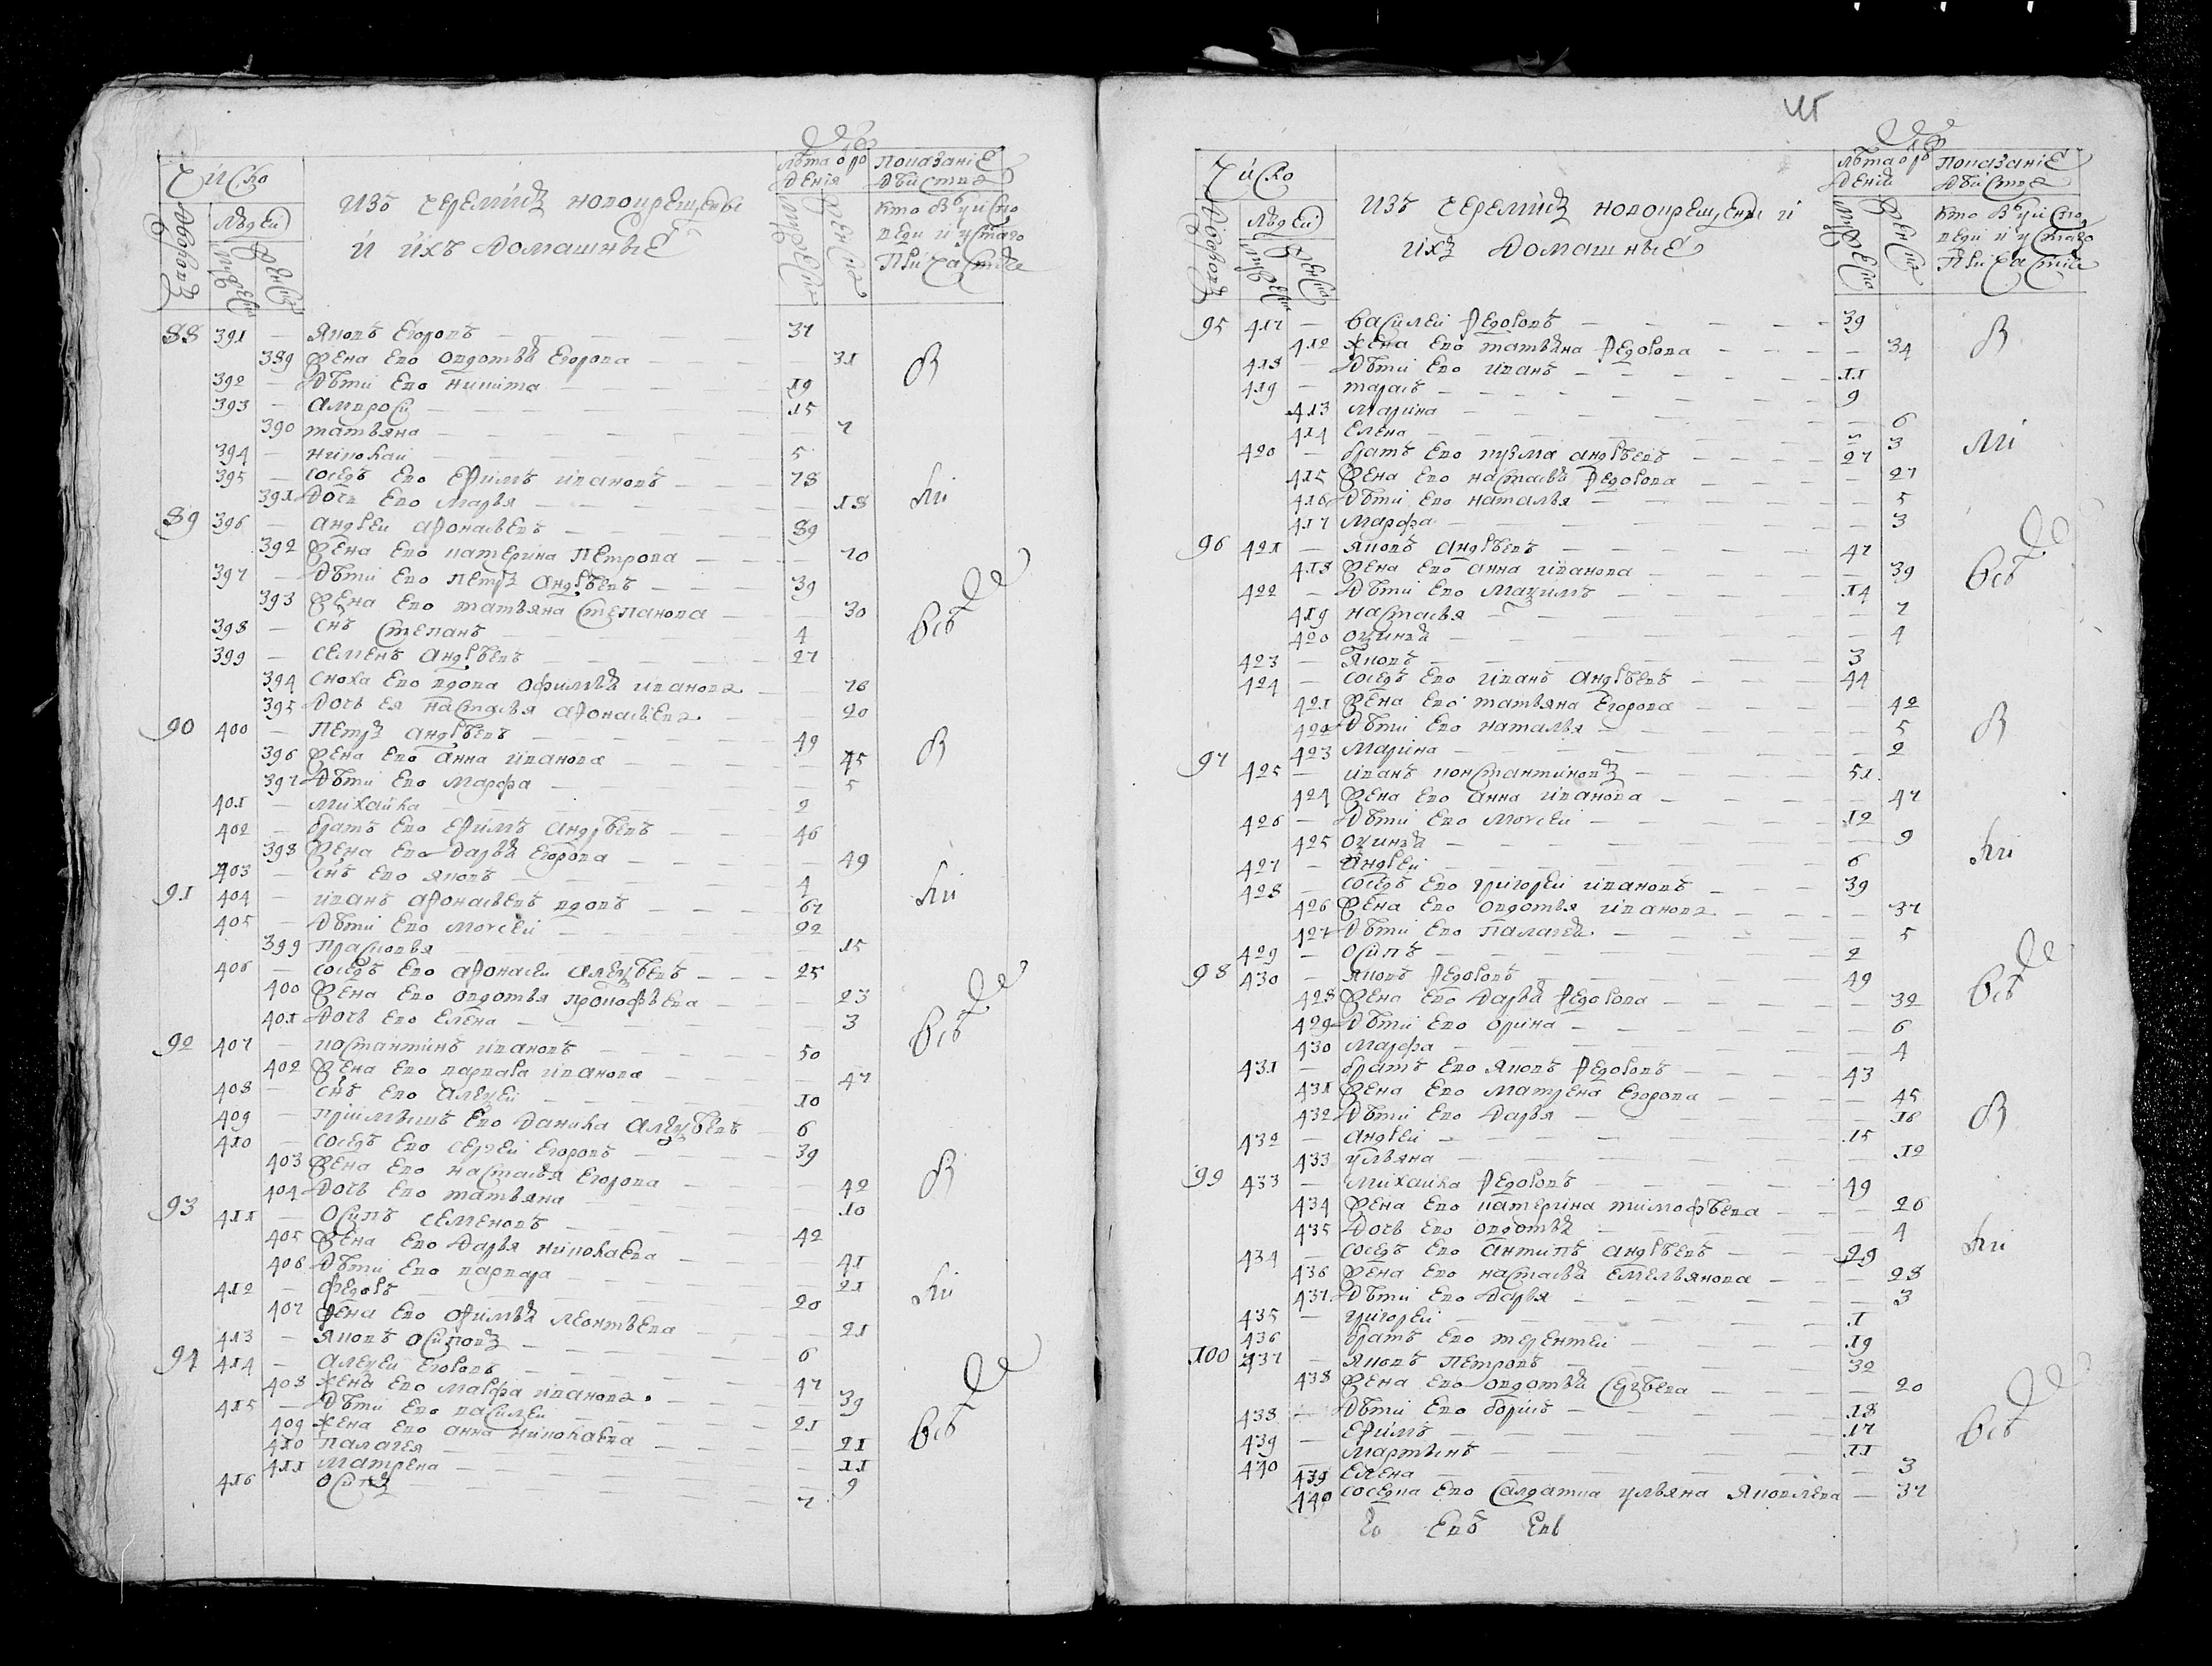 Число
Людей
Изъ черемисъ новокрещены
и ихъ домашные
лѣта рождения
показание действа
кто былъ у исповеди и у святаго причастия
88 391 — Яковъ Егоровъ — 37
389 жена ево овдотья Егорова — 31
392 — дѣти ево никита — 19
393 — амвроси — 15
390 татьяна — 7
394 — николай — 5
395 — соседъ ево ефимъ ивановъ — 78
391 дочь ево марья — 18
89 396 — андрей афонасьевъ — 89
392 жена ево катерина петрова — 70
397 — дѣти ево петръ андрѣевъ — 39
393 жена ево татьяна степанова — 30
398 — снъ степанъ — 4
399 — семенъ андрѣевъ — 27
394 сноха ево вдова офимья иванова — 76
395 дочь ея настасья афонасьева — 20
90 400 — петръ андрѣевъ — 49
396 жена ево анна иванова — 45
397 дѣти ево марфа — 5
401 — михайла — 2
402 — братъ ево ефимъ андрѣевъ — 46
398 жена ево дарья егорова — 49
403 — снъ ево яковъ — 4
91 404 — иванъ афонасьевъ вдовъ — 67
405 — дѣти ево моисей — 22
399 прасковья — 15
406 — соседъ ево афонасей алексѣевъ — 25
400 жена ево овдотья прокофьева — 23
401 дочь ево елена — 3
92 407 — костантинъ ивановъ — 50
402 жена ево варвара иванова — 47
408 — снъ ево алексей — 10
409 — приимышъ ево данила алексѣевъ — 6
410 — соседъ ево сергей егоровъ — 39
403 жена ево настасья егорова — 42
404 дочь ево татьяна — 10
93 411 — осипъ семеновъ — 42
405 жена ево дарья николаева — 41
406 дѣти ево варвара — 21
412 — федоръ — 20
407 жена ево офимья леонтьева — 21
413 — яковъ осиповъ — 6
94 414 — алексей егоровъ — 47
408 жена ево марфа иванова — 39
415 — дѣти ево василей — 21
409 жена ево анна николаева — 21
410 палагея — 11
411 матрена — 9
416 осипъ — 7
Число
Людей
Изъ черемисъ новокрещены и
ихъ домашные
лѣта рождения
показание действа
кто былъ у исповеди и у святаго причастия
95 417 — василей федоровъ — 39
412 жена ево татьяна федорова — 34
418 — дѣти ево иванъ — 11
419 — тарасъ — 9
413 марина — 6
414 елена — 3
420 — братъ ево кузма андрѣевъ — 27
415 жена ево настасья федорова — 27
416 дѣти ево наталья — 5
417 марфа — 3
96 421 — яковъ андрѣевъ — 47
418 жена ево анна иванова — 39
422 — дѣти ево максимъ — 14
419 настасья — 7
420 оксинья — 4
423 — яковъ — 3
424 — соседъ ево иванъ андрѣевъ — 44
421 жена ево татьяна егорова — 42
422 дѣти ево наталья — 5
423 марина — 2
97 425 — иванъ константиновъ — 51
424 жена ево анна иванова — 47
426 — дѣти ево моисей — 12
425 оксинья — 9
427 — андрей — 6
428 — соседъ ево григорей ивановъ — 39
426 жена ево овдотья иванова — 37
427 дѣти ево палагея — 5
429 — осипъ — 2
98 430 — яковъ федоровъ — 49
428 жена ево дарья федорова — 32
429 дѣти ево орина — 6
430 марфа — 4
431 — братъ ево яковъ федоровъ — 43
431 жена ево матрена егорова — 45
432 дѣти ево дарья — 18
432 — андрей — 15
433 ульяна — 12
99 433 — михайла федоровъ — 49
434 жена ево катерина тимофѣева — 26
435 дочь ево овдотья — 4
434 — соседъ ево антипъ андрѣевъ — 29
436 жена ево настасья емельянова — 28
437 дѣти ево дарья — 3
435 — григорей — 1
436 братъ ево терентей — 19
100 437 — яковъ петровъ — 32
438 жена ево овдотья сергѣева — 20
438 — дѣти ево борисъ — 18
439 — ефимъ — 17
440 — мартынъ — 11
439 елена — 3
440 соседка ево салдатка ульяна яковлева — 37